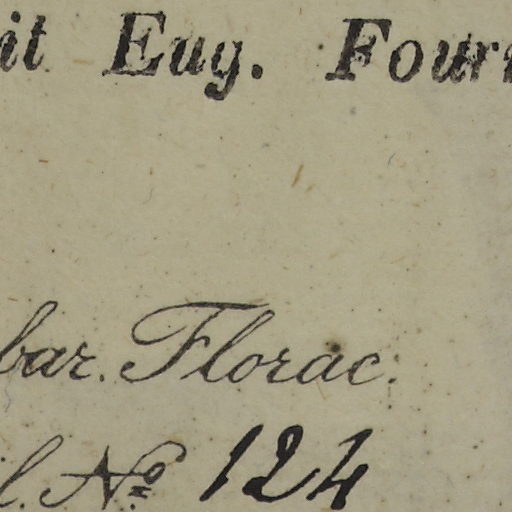 it Eug. Fourr
bar. Florac.
l. Nº 124